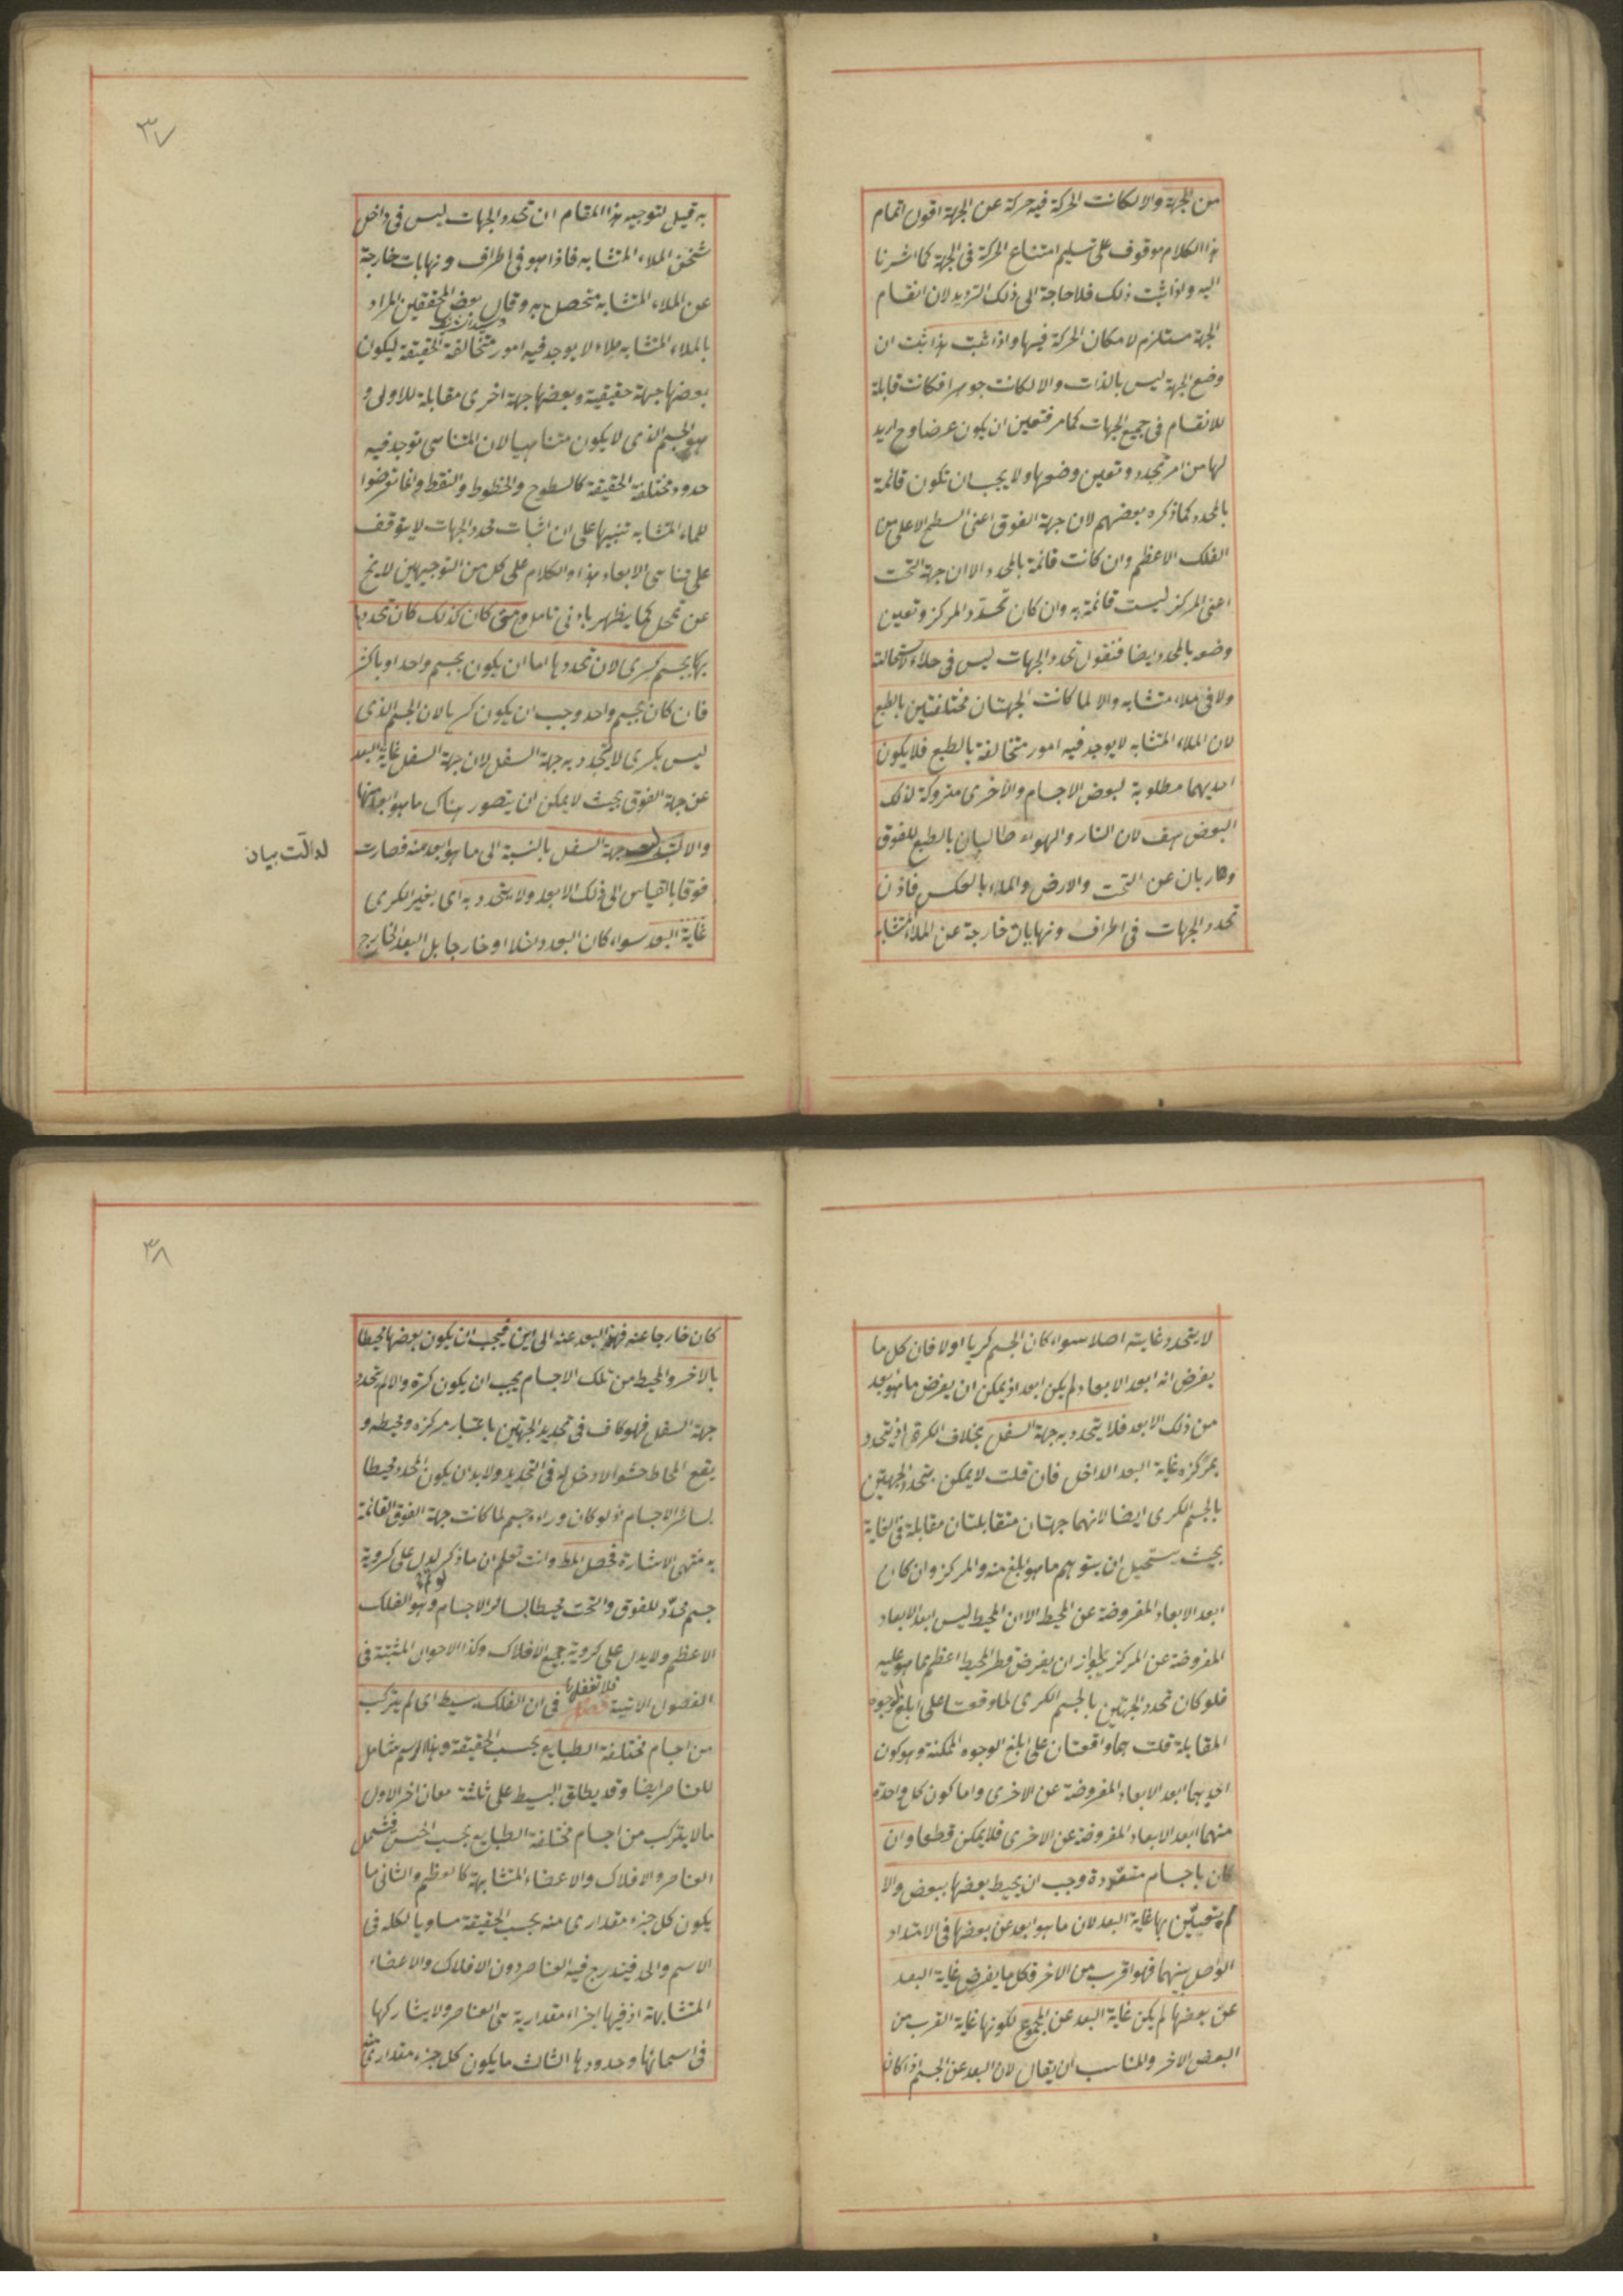 من الجهة والا لكانت الحركة فيه حركة عن الجهة اقول اتمام
هذا الكلام موقوف على تسليم امتناع الحركة فى الجهة كما اشرنا
اليه واذا ثبت ذلك فلا حاجة الى ذلك الترديد لان انقسام
الجهة مستلزم لامكان الحركة فيها واذا ثبت هذا ثبت ان
وضع الجهة ليس بالذات والا لكانت جوهرا فكانت قابلة
للانقسام فى جميع الجهات كما مر فتعين ان يكون عرضا وح اريد
لها من امر تحدد وتعين وضعها ولا يجب ان تكون قائمة
بالمحدد كما ذكره بعضهم لان جهة الفوق اعنى السطح الاعلى من
الفلك الاعظم وان كانت قائمة بالمحدد الا ان جهة التحت
اعنى المركز ليست قائمة به وان كان تحدد المركز وتعين
وضعه بالمحدد ايضا فنقول تحدد الجهات ليس فى خلاء لاستحالته
ولا فى ملاء متشابه والا لما كانت الجهتان مختلفتين بالطبع
لان الملاء المتشابه لا يوجد فيه امور متخالفة بالطبع فلا يكون
احديهما مطلوبة لبعض الاجسام والاخرى متروكة لذلك
البعض هف لان النار والهواء طالبان بالطبع للفوق
وهاربان عن التحت والارض والماء بالعكس فاذن
تحدد الجهات فى اطراف ونهايات خارجة عن الملاء المتشابه
٣٧
به قيل لتوجيه هذا المقام ان تحدد الجهات ليس فى داخل
ثخن الملاء المتشابه فاذا هو فى اطراف ونهايات خارجة
عن الملاء المتشابه متحصل به وقال بعض المحققين المراد
بالملاء المتشابه ملاء لا يوجد فيه امور متخالفة الحقيقة ليكون
بعضها جهة حقيقية وبعضها جهة اخرى مقابلة للاولى و
هو الجسم الذى لا يكون متناهيا لان المتناهى توجد فيه
حدود مختلفة الحقيقة كالسطوح والخطوط والنقط وانما تعرضوا
للملاء المتشابه تنبيها على ان اثبات محدد الجهات لا يتوقف
على تناهى الابعاد هذا والكلام على كل من التوجيهين لا يخ
عن تمحل كما يظهر بادنى تامل ومتى كان كذلك كان تحددها
بها بجسم كرى لان تحددها اما ان يكون بجسم واحد او باكثر
فان كان بجسم واحد وجب ان يكون كريا لان الجسم الذى
ليس بكرى لا يتحدد به جهة السفل لان جهة السفل غاية البعد
عن جهة الفوق بحيث لا يمكن ان يتصور هناك ما هو ابعد منها
والا جهة السفل بالنسبة الى ما هو ابعد منه فصارت
فوقا بالقياس الى ذلك الابعد ولا يتحدد به اى بغير الكرى
غاية البعد سواء كان البعد داخلا او خارجا بل البعد الخارج
لا يتحدد غايته اصلا سواء كان الجسم كريا اولا فان كل ما
يفرض انه ابعد الابعاد لم يكن ابعد اذ يمكن ان يفرض ما هو ابعد
من ذلك الابعد فلا يتحدد به جهة السفل بخلاف الكرة اذ يتحدد
بمركزه غاية البعد الداخل فان قلت لا يمكن تحدد الجهتين
بالجسم الكرى ايضا لانهما جهتان متقابلتان مقابلة فى الغاية
بحيث يستحيل ان يتوهم ما هو ابلغ منه والمركز وان كان
ابعد الابعاد المفروضة عن المحيط الا ان المحيط ليس ابعد الابعاد
المفروضة عن المركز لجواز ان يفرض قطر المحيط اعظم مما هو عليه
فلو كان تحدد الجهتين بالجسم الكرى لما وقعتا على ابلغ الوجوه
المقابلة قلت هما واقعتان على ابلغ الوجوه الممكنة وهو كون
احديهما ابعد الابعاد المفروضة عن الاخرى واما كون كل واحدة
منهما ابعد الابعاد المفروضة عن الاخرى فلا يمكن قطعا وان
كان باجسام متعددة وجب ان يحيط بعضها ببعض والا
لم يتعين بها غاية البعد لان ما هو ابعد عن بعضها فى الامتداد
الواصل بينهما فهو اقرب من الاخر فكل ما يفرض غاية البعد
عن بعضها لم يكن غاية البعد عن المجموع لكونها غاية القرب من
البعض الاخر والمناسب ان يقال لان البعد عن الجسم اذا كان
٣٨
كان خارجا عنه فهذا البعد عنه الى اين فيجب ان يكون بعضها محيطا
بالاخر والمحيط من تلك الاجسام يجب ان يكون كرة والا لم يتحدد
جهة السفل فهو كاف فى تحديد الجهتين باعتبار مركزه ومحيطه و
يقع المحاط حشوا لا دخل له فى التحديد ولا بد ان يكون المحدد محيطا
لسائر الاجسام اذ لو كان وراءه جسم لما كانت جهة الفوق القائمة
به منتهى الاشارة فحصل المط وانت تعلم ان ما ذكر يدل على كروية
جسم محدد للفوق والتحت محيطا بسائر الاجسام وهو الفلك
الاعظم ولا يدل على كروية جميع الافلاك وكذا الاحوال المثبتة فى
الفصول الاتية فلا تغفل فصل فى ان الفلك بسيط اى لم يتركب
من اجسام مختلفة الطبايع بحسب الحقيقة وهذا الرسم شامل
للعناصر ايضا وقد يطلق البسيط على ثلثة معان اخر الاول
ما لا يتركب من اجسام مختلفة الطبايع بحسب الحس فيشمل
العناصر والافلاك والاعضاء المتشابهة كالعظم والثانى ما
يكون كل جزء مقدارى منه بحسب الحقيقة مساويا لكله فى
الاسم والحد فيندرج فيه العناصر دون الافلاك والاعضاء
المتشابهة اذ فيها اجزاء مقدارية هى العناصر ولا يشاركها
فى اسمائها وحدودها الثالث ما يكون كل جزء مقدارى منه